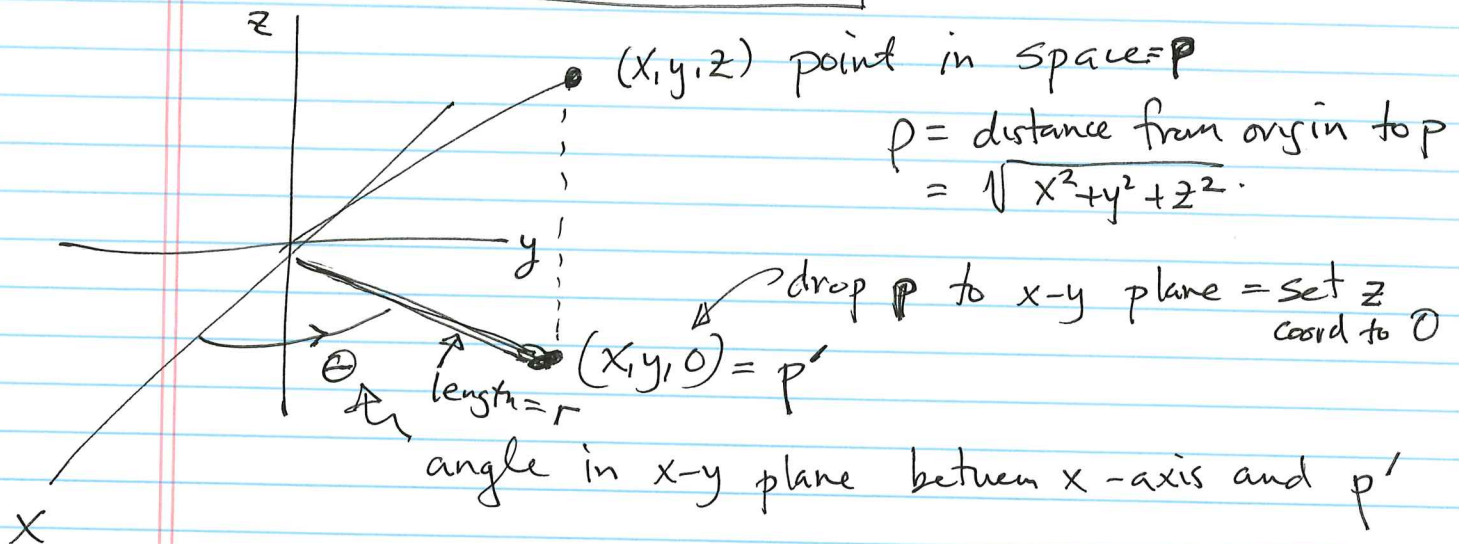 z
(x,y,z) point in space=P
ρ = distance from origin to p
= √x²+y²+z².
y
drop p to x-y plane = set z
coord to 0
(x,y,0) = p'
θ
length=r
angle in x-y plane between x-axis and p'
X